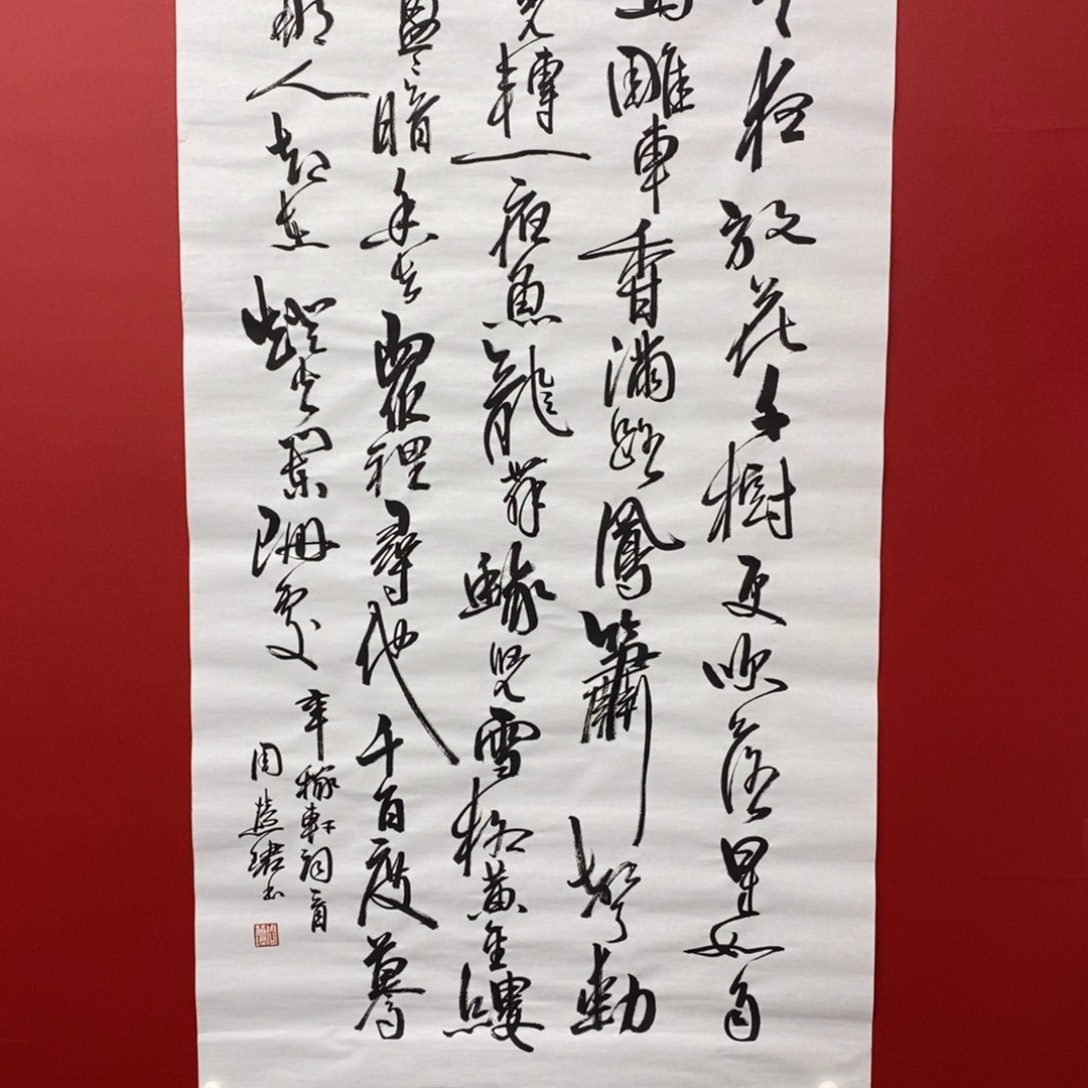 夜放花千樹更吹落星如雨
馬雕車香滿路鳳簫聲動
光轉一夜魚龍舞蛾兒雪柳黃金縷
盈〻暗香去眾裡尋他千百度驀
那人却在燈火闌珊處
辛稼軒詞一首
周慧珺書